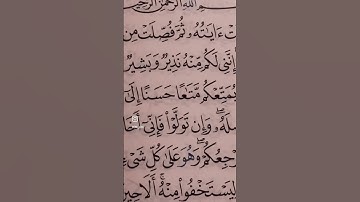 ـمِ ٱللَّهِ ٱلرَّحْمَٰنِ ٱلرَّحِيمِ
ـتْ ءَايَٰتُهُۥ ثُمَّ فُصِّلَتْ مِن
إِنَّنِى لَكُم مِّنْهُ نَذِيرٌ وَبَشِيرٌ
يُمَتِّعْكُم مَّتَٰعًا حَسَنًا إِلَىٰٓ
ـلَهُۥ ۖ وَإِن تَوَلَّوْا۟ فَإِنِّىٓ أَخَا
ـرْجِعُكُمْ ۖ وَهُوَ عَلَىٰ كُلِّ شَىْءٍ
لِيَسْتَخْفُوا۟ مِنْهُ ۚ أَلَا حِيـ